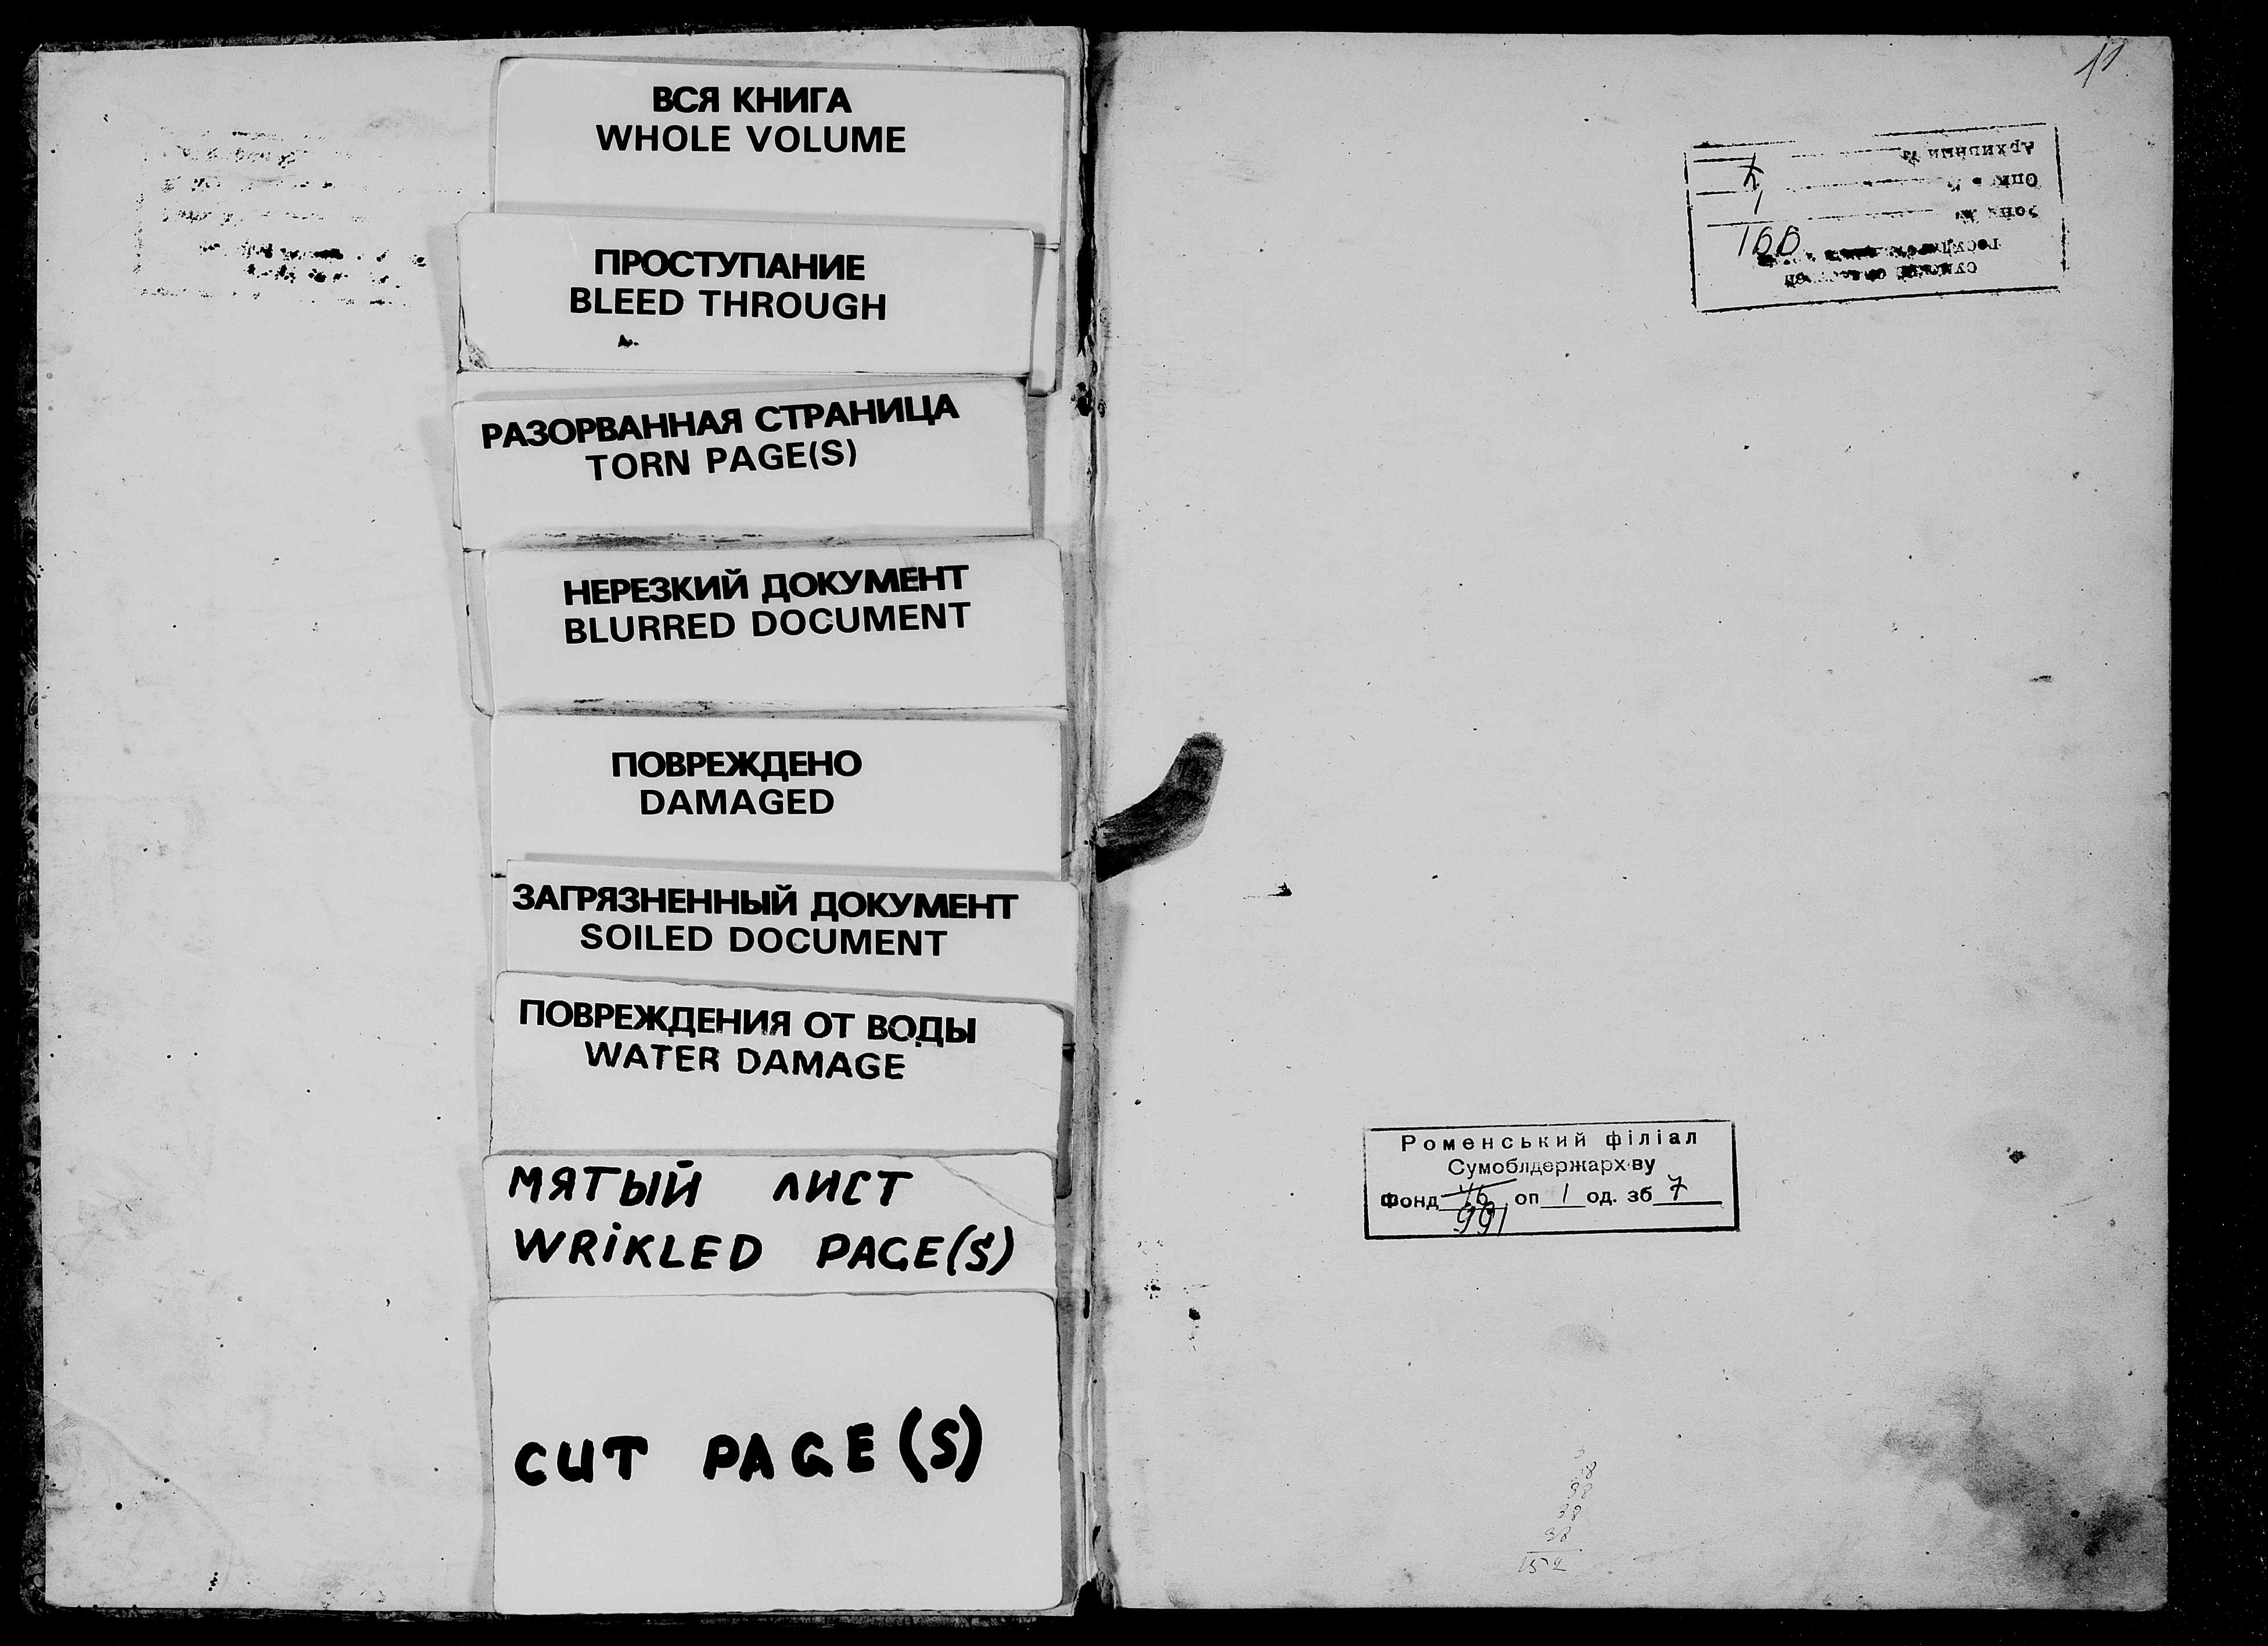 ВСЯ КНИГА
WHOLE VOLUME
ПРОСТУПАНИЕ
BLEED THROUGH
РАЗОРВАННАЯ СТРАНИЦА
TORN PAGE(S)
НЕРЕЗКИЙ ДОКУМЕНТ
BLURRED DOCUMENT
ПОВРЕЖДЕНО
DAMAGED
ЗАГРЯЗНЕННЫЙ ДОКУМЕНТ
SOILED DOCUMENT
ПОВРЕЖДЕНИЯ ОТ ВОДЫ
WATER DAMAGE
МЯТЫЙ ЛИСТ
WRiKLED PAGE(S)
CUT PAGE(S)
Архивный №
7
Опись №
1
Фонд №
Роменський філіал
Сумоблдержархіву
Фонд 46 оп 1 од. зб 7
991
38
38
38
152